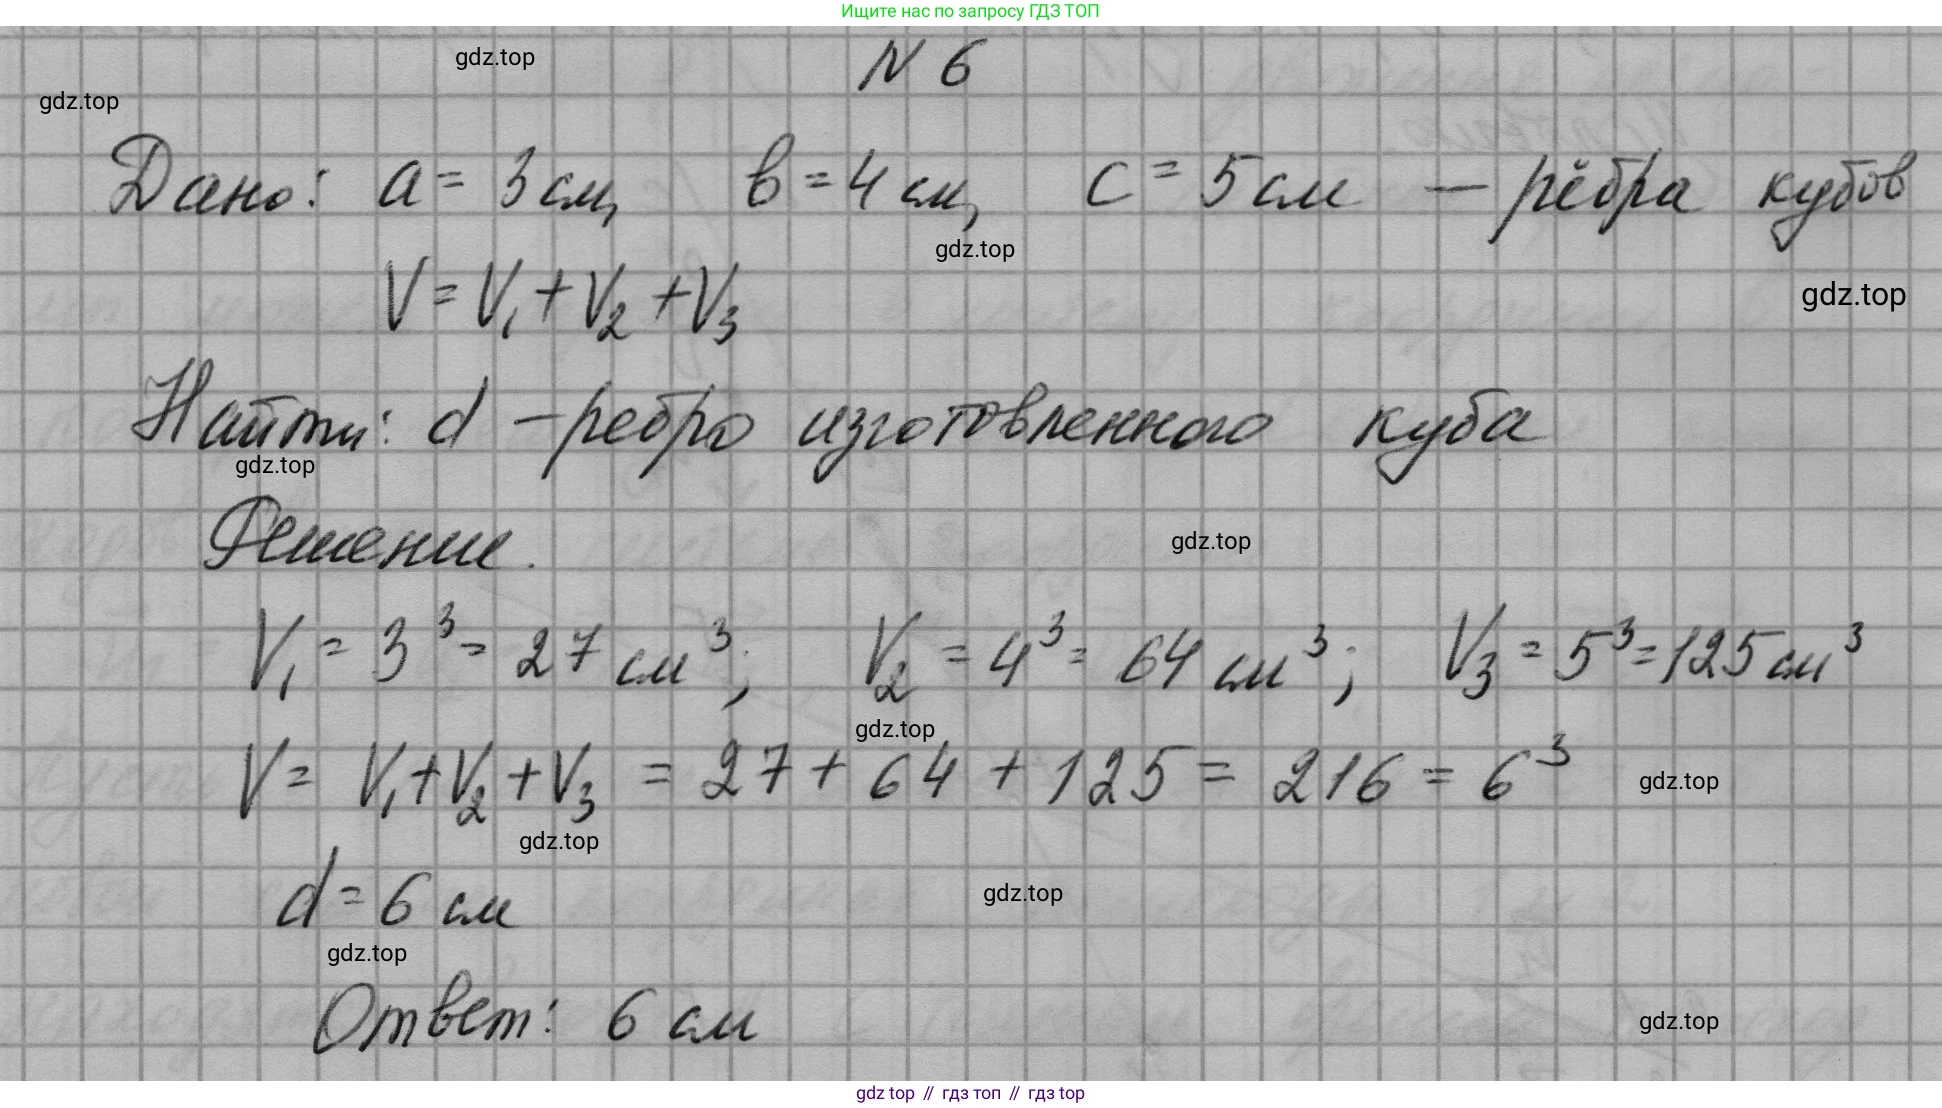 Ищите нас по запросу ГДЗ ТОП
gdz.top
N 6
gdz.top
Дано: a = 3 см, в = 4 см, c = 5 см — рёбра кубов
gdz.top
V = V₁ + V₂ + V₃
gdz.top
Найти: d - ребро изготовленного куба
gdz.top
Решение.
gdz.top
V₁ = 3³ = 27 см³; V₂ = 4³ = 64 см³; V₃ = 5³ = 125 см³
gdz.top
V = V₁ + V₂ + V₃ = 27 + 64 + 125 = 216 = 6³
gdz.top
gdz.top
d = 6 см
gdz.top
gdz.top
Ответ: 6 см
gdz.top
gdz top // гдз топ // гдз top